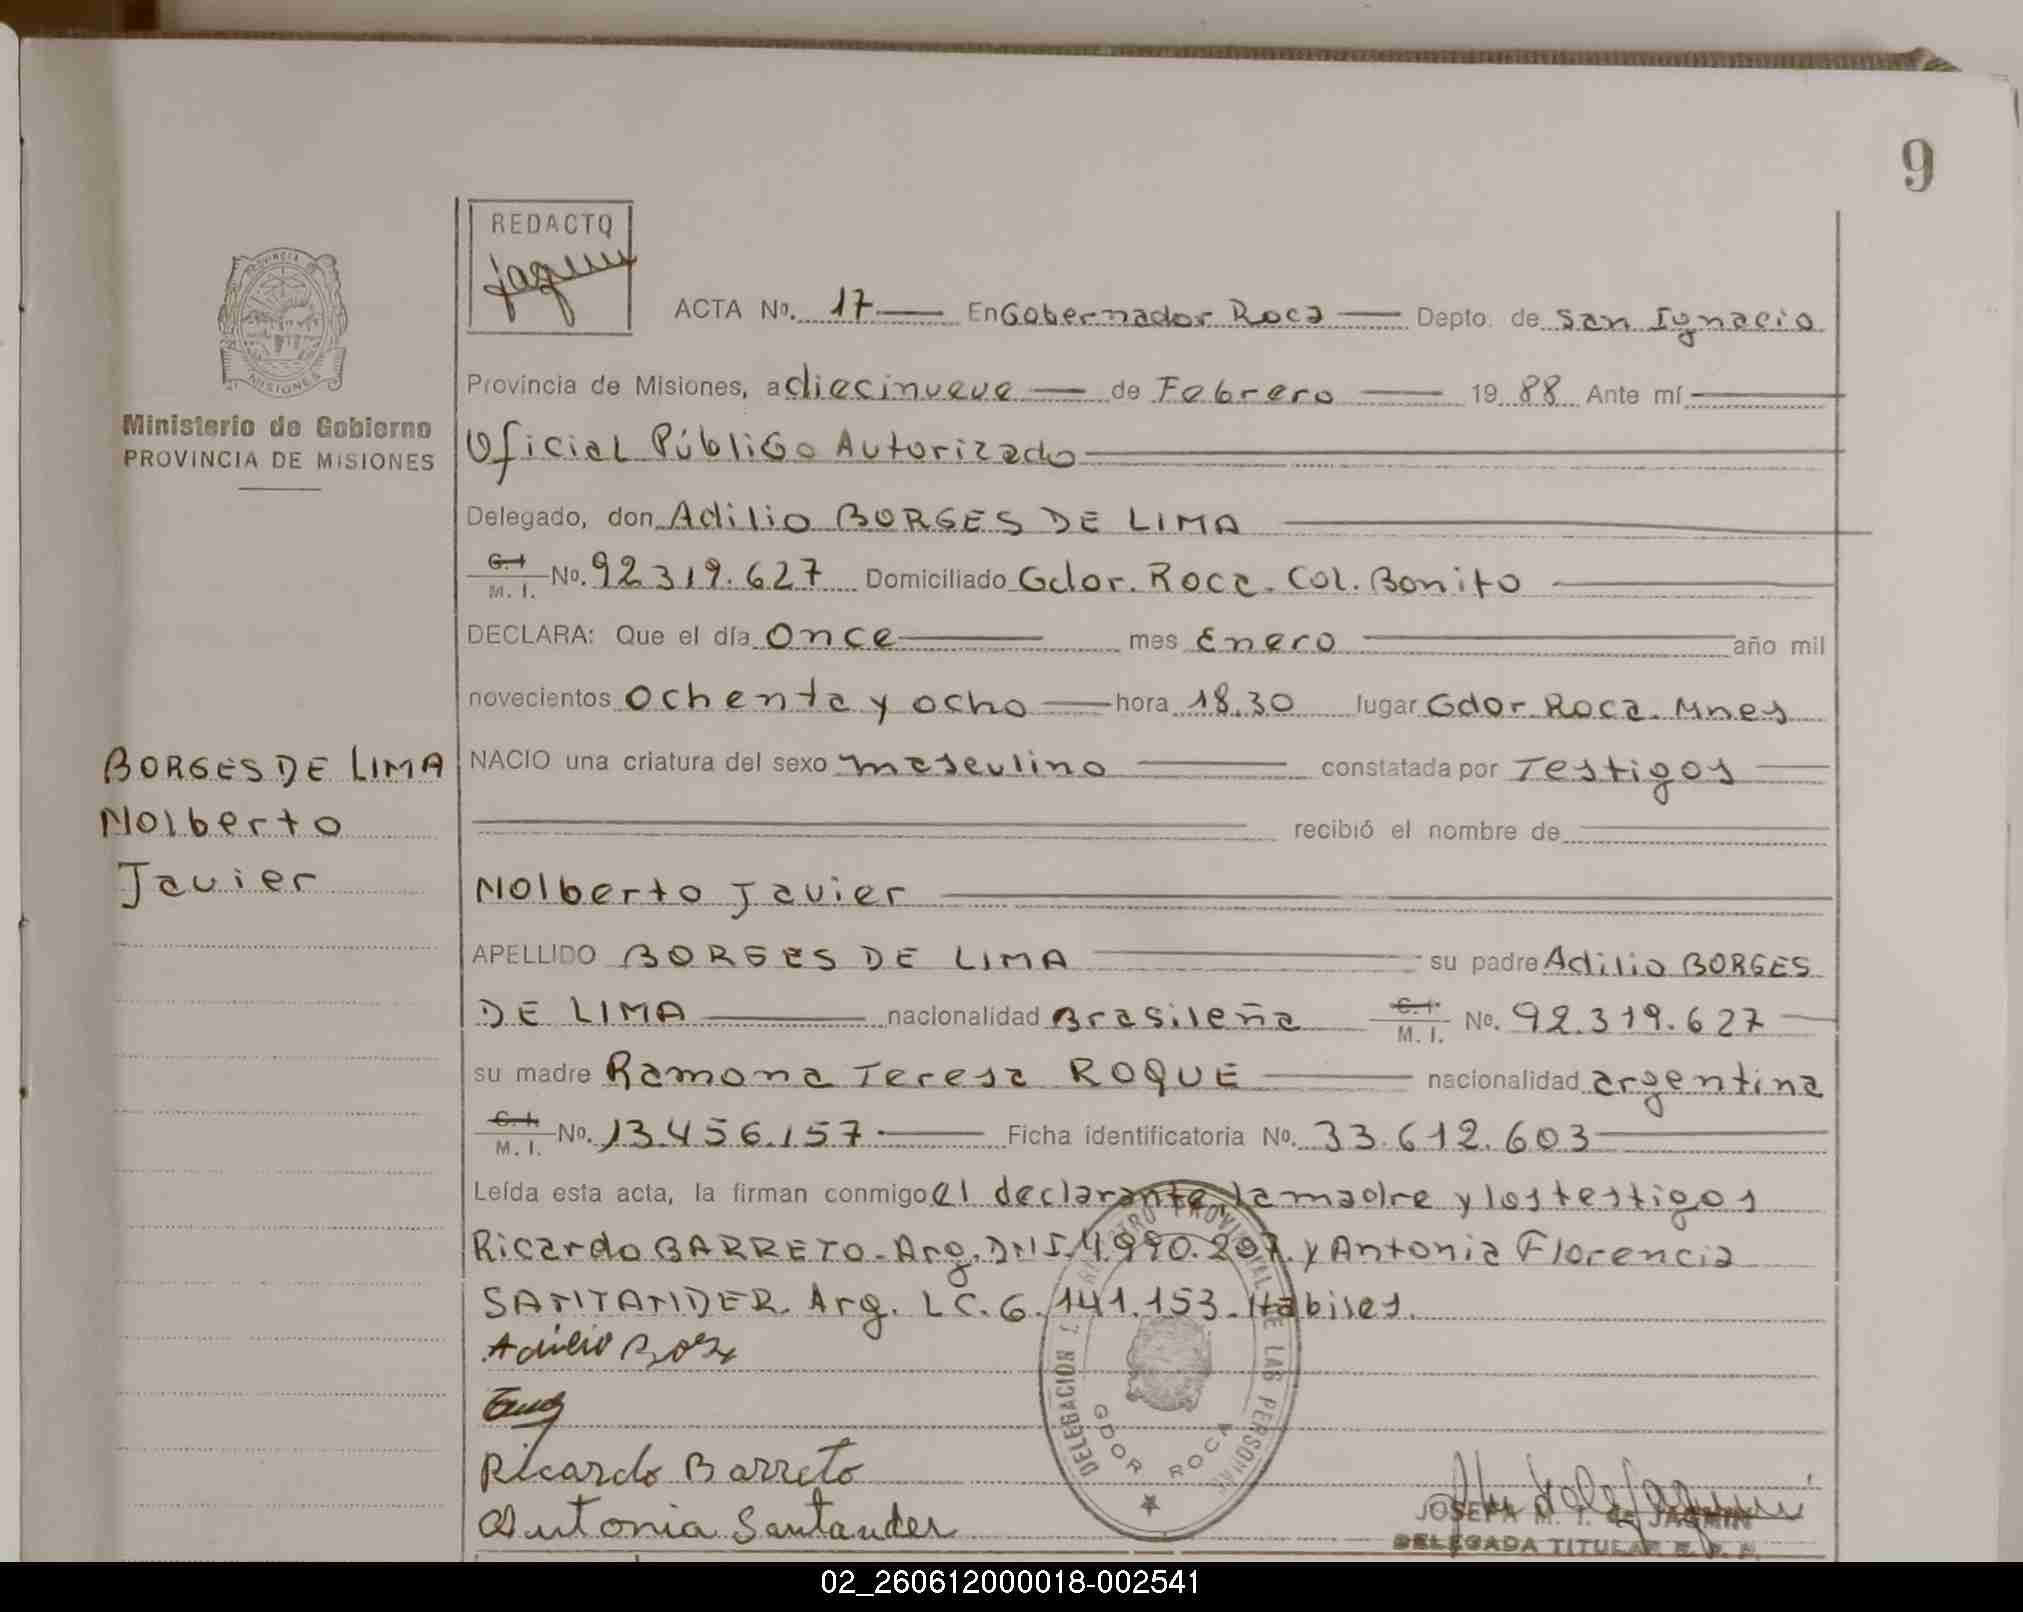 9
REDACTO
ACTA No. 17 En Gobernador Roca Depto. de San Ignacio
Provincia de Misiones, a diecinueve de Febrero 19 88 Ante mí
PROVINCIA DE MISIONES
Ministerio de Gobierno
PROVINCIA DE MISIONES
Oficial Público Autorizado
Delegado, don Adilio BORGES DE LIMA
C.I. M. I. No. 92319.627 Domiciliado Gdor. Roca. Col. Bonito
DECLARA: Que el día Once mes Enero año mil
novecientos Ochenta y ocho hora 18.30 lugar Gdor Roca. Mnes
BORGES DE LIMA
Nolberto
Javier
NACIO una criatura del sexo masculino constatada por Testigos
recibió el nombre de
Nolberto Javier
APELLIDO BORGES DE LIMA su padre Adilio BORGES
DE LIMA nacionalidad Brasileña C.I. M. I. No. 92.319.627
su madre Ramona Teresa ROQUE nacionalidad argentina
C.I. M. I. No. 13.456.157 Ficha identificatoria No. 33.612.603
Leída esta acta, la firman conmigo el declarante, la madre y los testigos
Ricardo BARRETO. Arg. DNI. 4.990.207. y Antonia Florencia
SANTANDER. Arg. LC. 6.141.153. Hábiles.
Adilio
Ricardo Barreto
Antonia Santander
DELEGACION REGISTRO PROVINCIAL DE LAS PERSONAS
GDOR ROCA
JOSEFA M. T. de JAQMIN
DELEGADA TITULAR R. P. P.
02_260612000018-002541